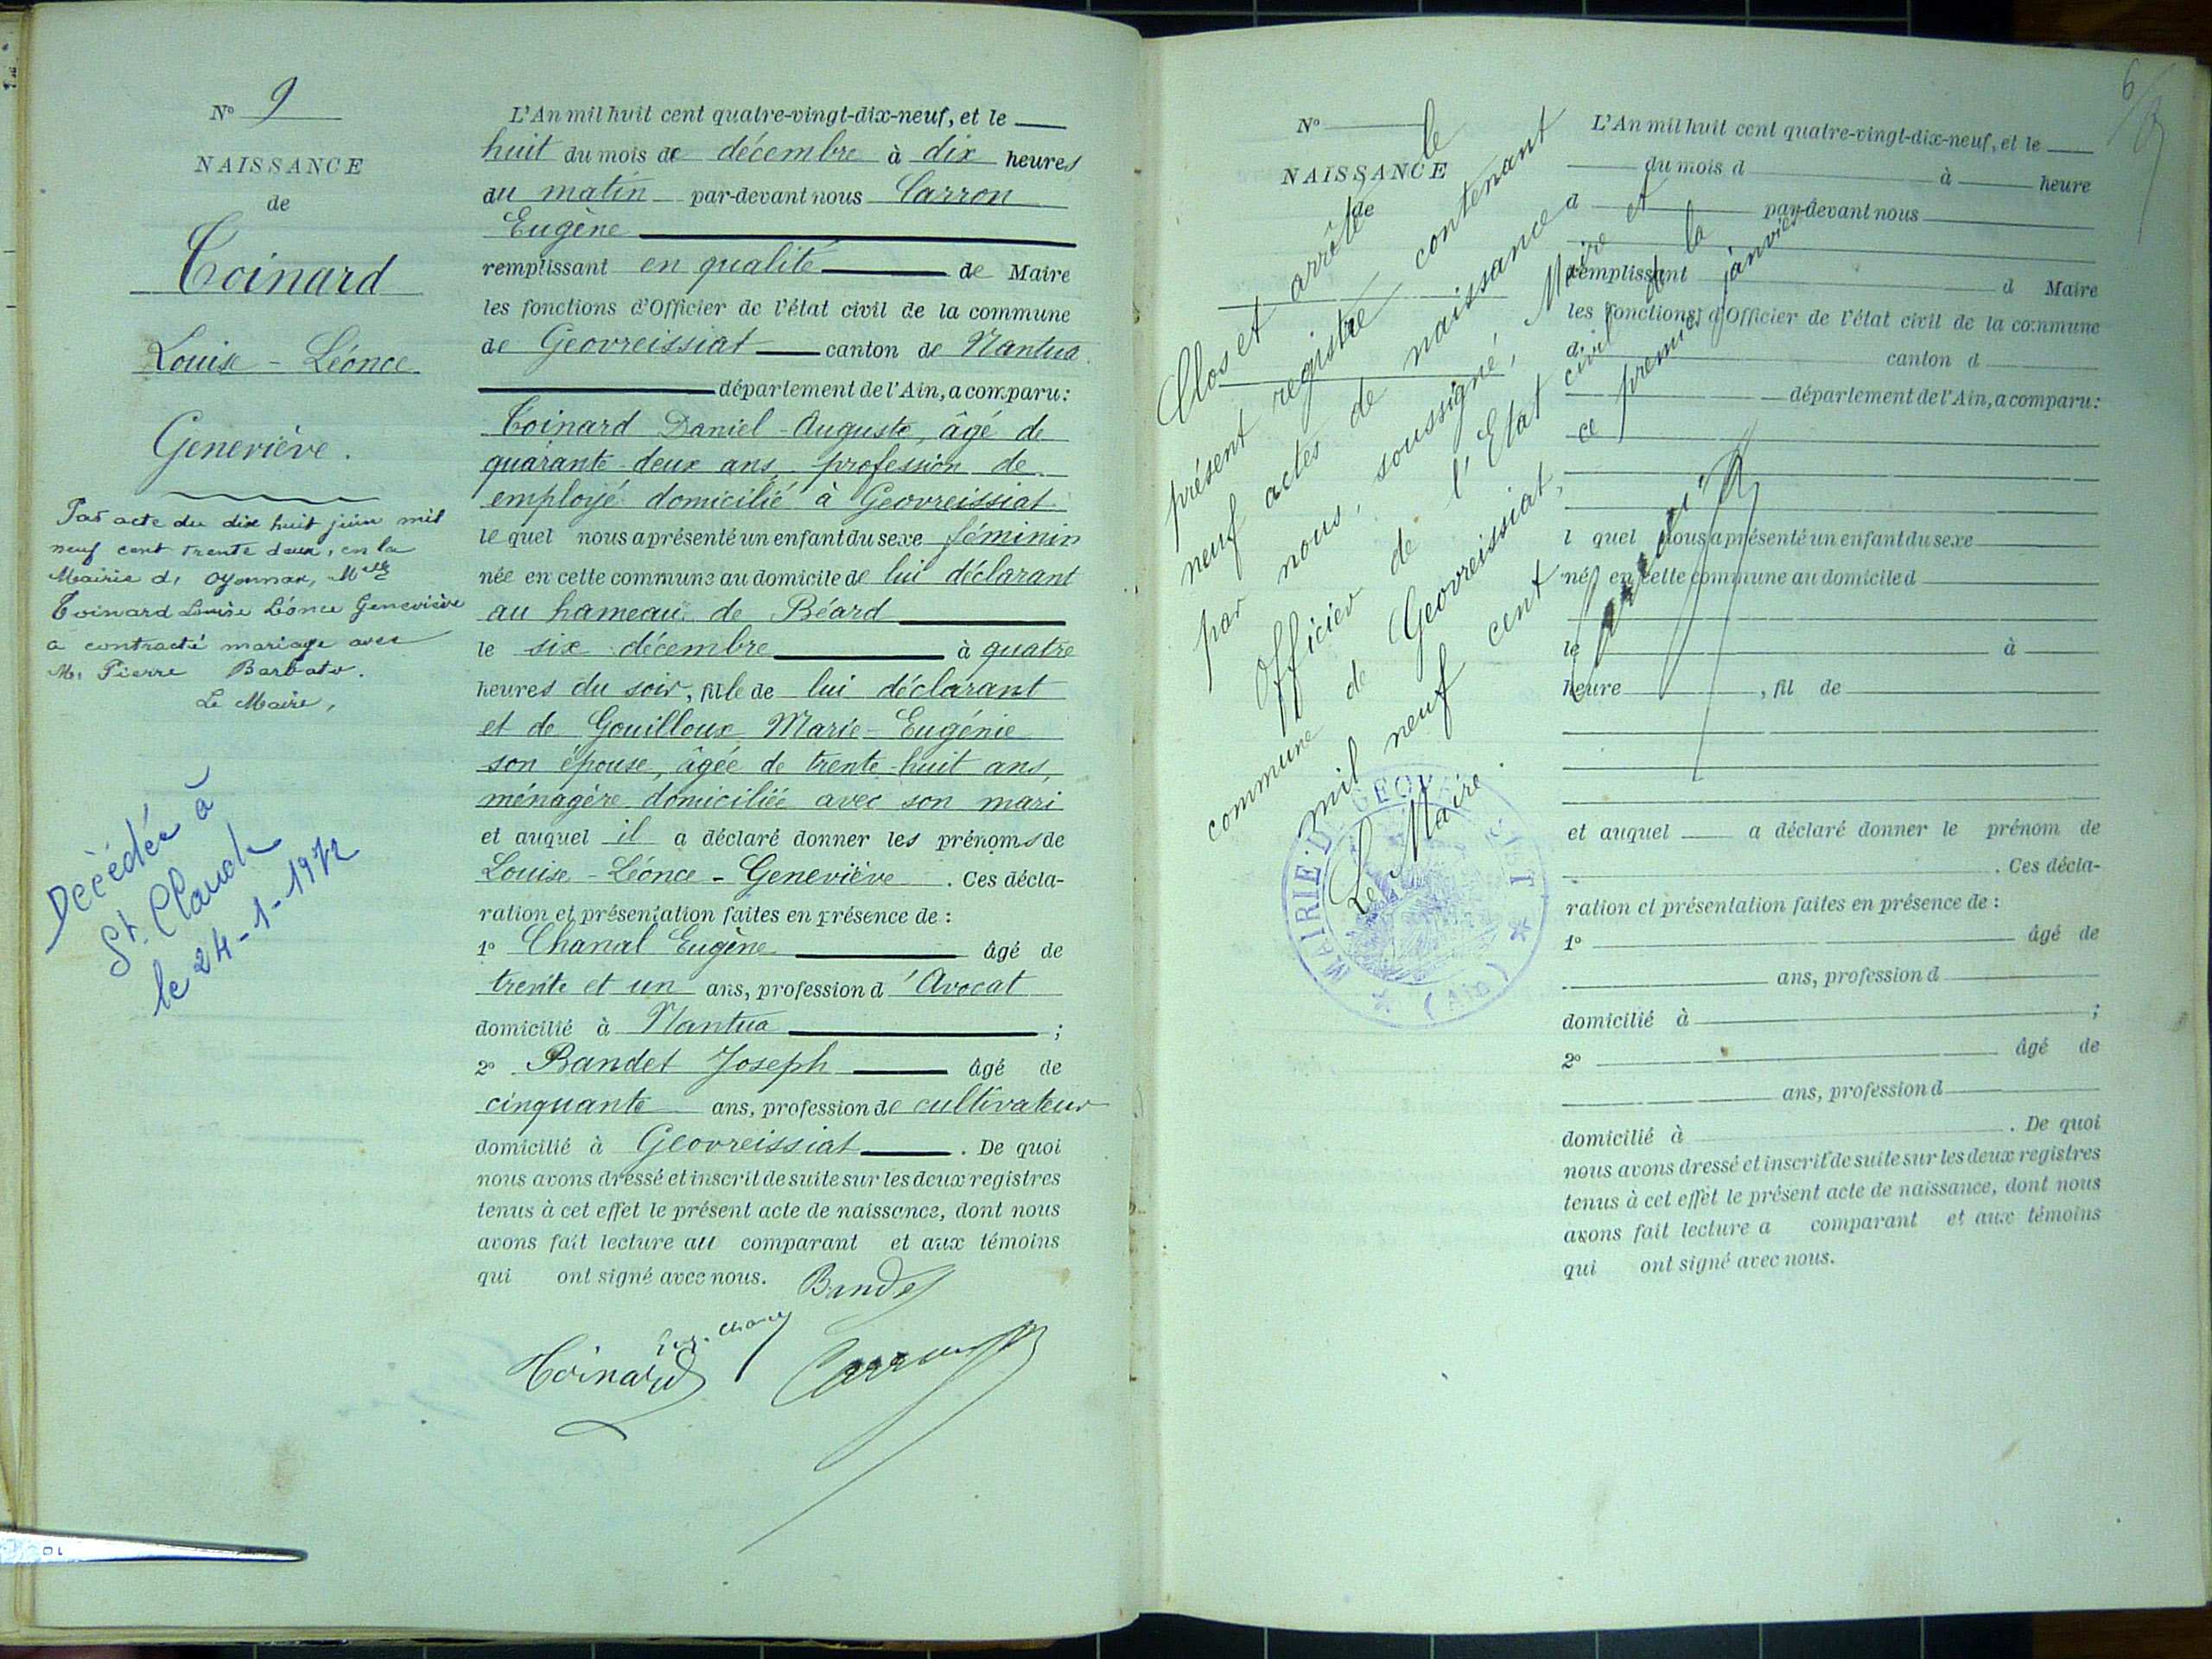 N° 9
NAISSANCE
de
Toinard
Louise - Léonce
Geneviève.
Par acte du dix huit juin mil
neuf cent trente deux, en la
Mairie d' Oyonnax, Melle
Toinard Louise Léonce Geneviève
a contracté mariage avec
M. Pierre Barbato.
Le Maire,
Decédée à
St. Claude
le 24-1-1972
L'An mil huit cent quatre-vingt-dix-neuf, et le
huit du mois de décembre à dix heures
du matin par-devant nous Carron
Eugène
remplissant en qualité de Maire
les fonctions d'Officier de l'état civil de la commune
de Geovreissiat canton de Nantua
département de l'Ain, a comparu:
Toinard Daniel-Auguste, âgé de
quarante-deux ans, profession de
employé domicilié à Geovreissiat
le quel nous a présenté un enfant du sexe féminin
née en cette commune au domicile de lui déclarant
au hameau de Béard
le six décembre à quatre
heures du soir, fille de lui déclarant
et de Gouilloux Marie-Eugénie
son épouse, âgée de trente-huit ans,
ménagère domiciliée avec son mari
et auquel il a déclaré donner les prénoms de
Louise - Léonce - Geneviève. Ces décla-
ration et présentation faites en présence de :
1° Chanal Eugène âgé de
trente et un ans, profession d'Avocat
domicilié à Nantua ;
2° Bandet Joseph âgé de
cinquante ans, profession de cultivateur
domicilié à Geovreissiat . De quoi
nous avons dressé et inscrit de suite sur les deux registres
tenus à cet effet le présent acte de naissance, dont nous
avons fait lecture au comparant et aux témoins
qui ont signé avec nous.
Bandet
Toinard
Carron
6
N°
NAISSANCE
de
Clos et arrêté le
présent registre contenant
neuf actes de naissance
par nous, soussigné, Maire et
Officier de l'Etat civil de la
commune de Geovreissiat, ce premier janvier
mil neuf cent.
Le Maire
MAIRIE DE GEOVREISSIAT
(Ain)
L'An mil huit cent quatre-vingt-dix-neuf, et le
du mois d à heure
d par-devant nous
remplissant d Maire
les fonctions d'Officier de l'état civil de la commune
d canton d
département de l'Ain, a comparu:
l quel nous a présenté un enfant du sexe
né en cette commune au domicile d
le à
heure , fil de
et auquel a déclaré donner le prénom de
. Ces décla-
ration et présentation faites en présence de :
1° âgé de
ans, profession d
domicilié à ;
2° âgé de
ans, profession d
domicilié à . De quoi
nous avons dressé et inscrit de suite sur les deux registres
tenus à cet effet le présent acte de naissance, dont nous
avons fait lecture a comparant et aux témoins
qui ont signé avec nous.